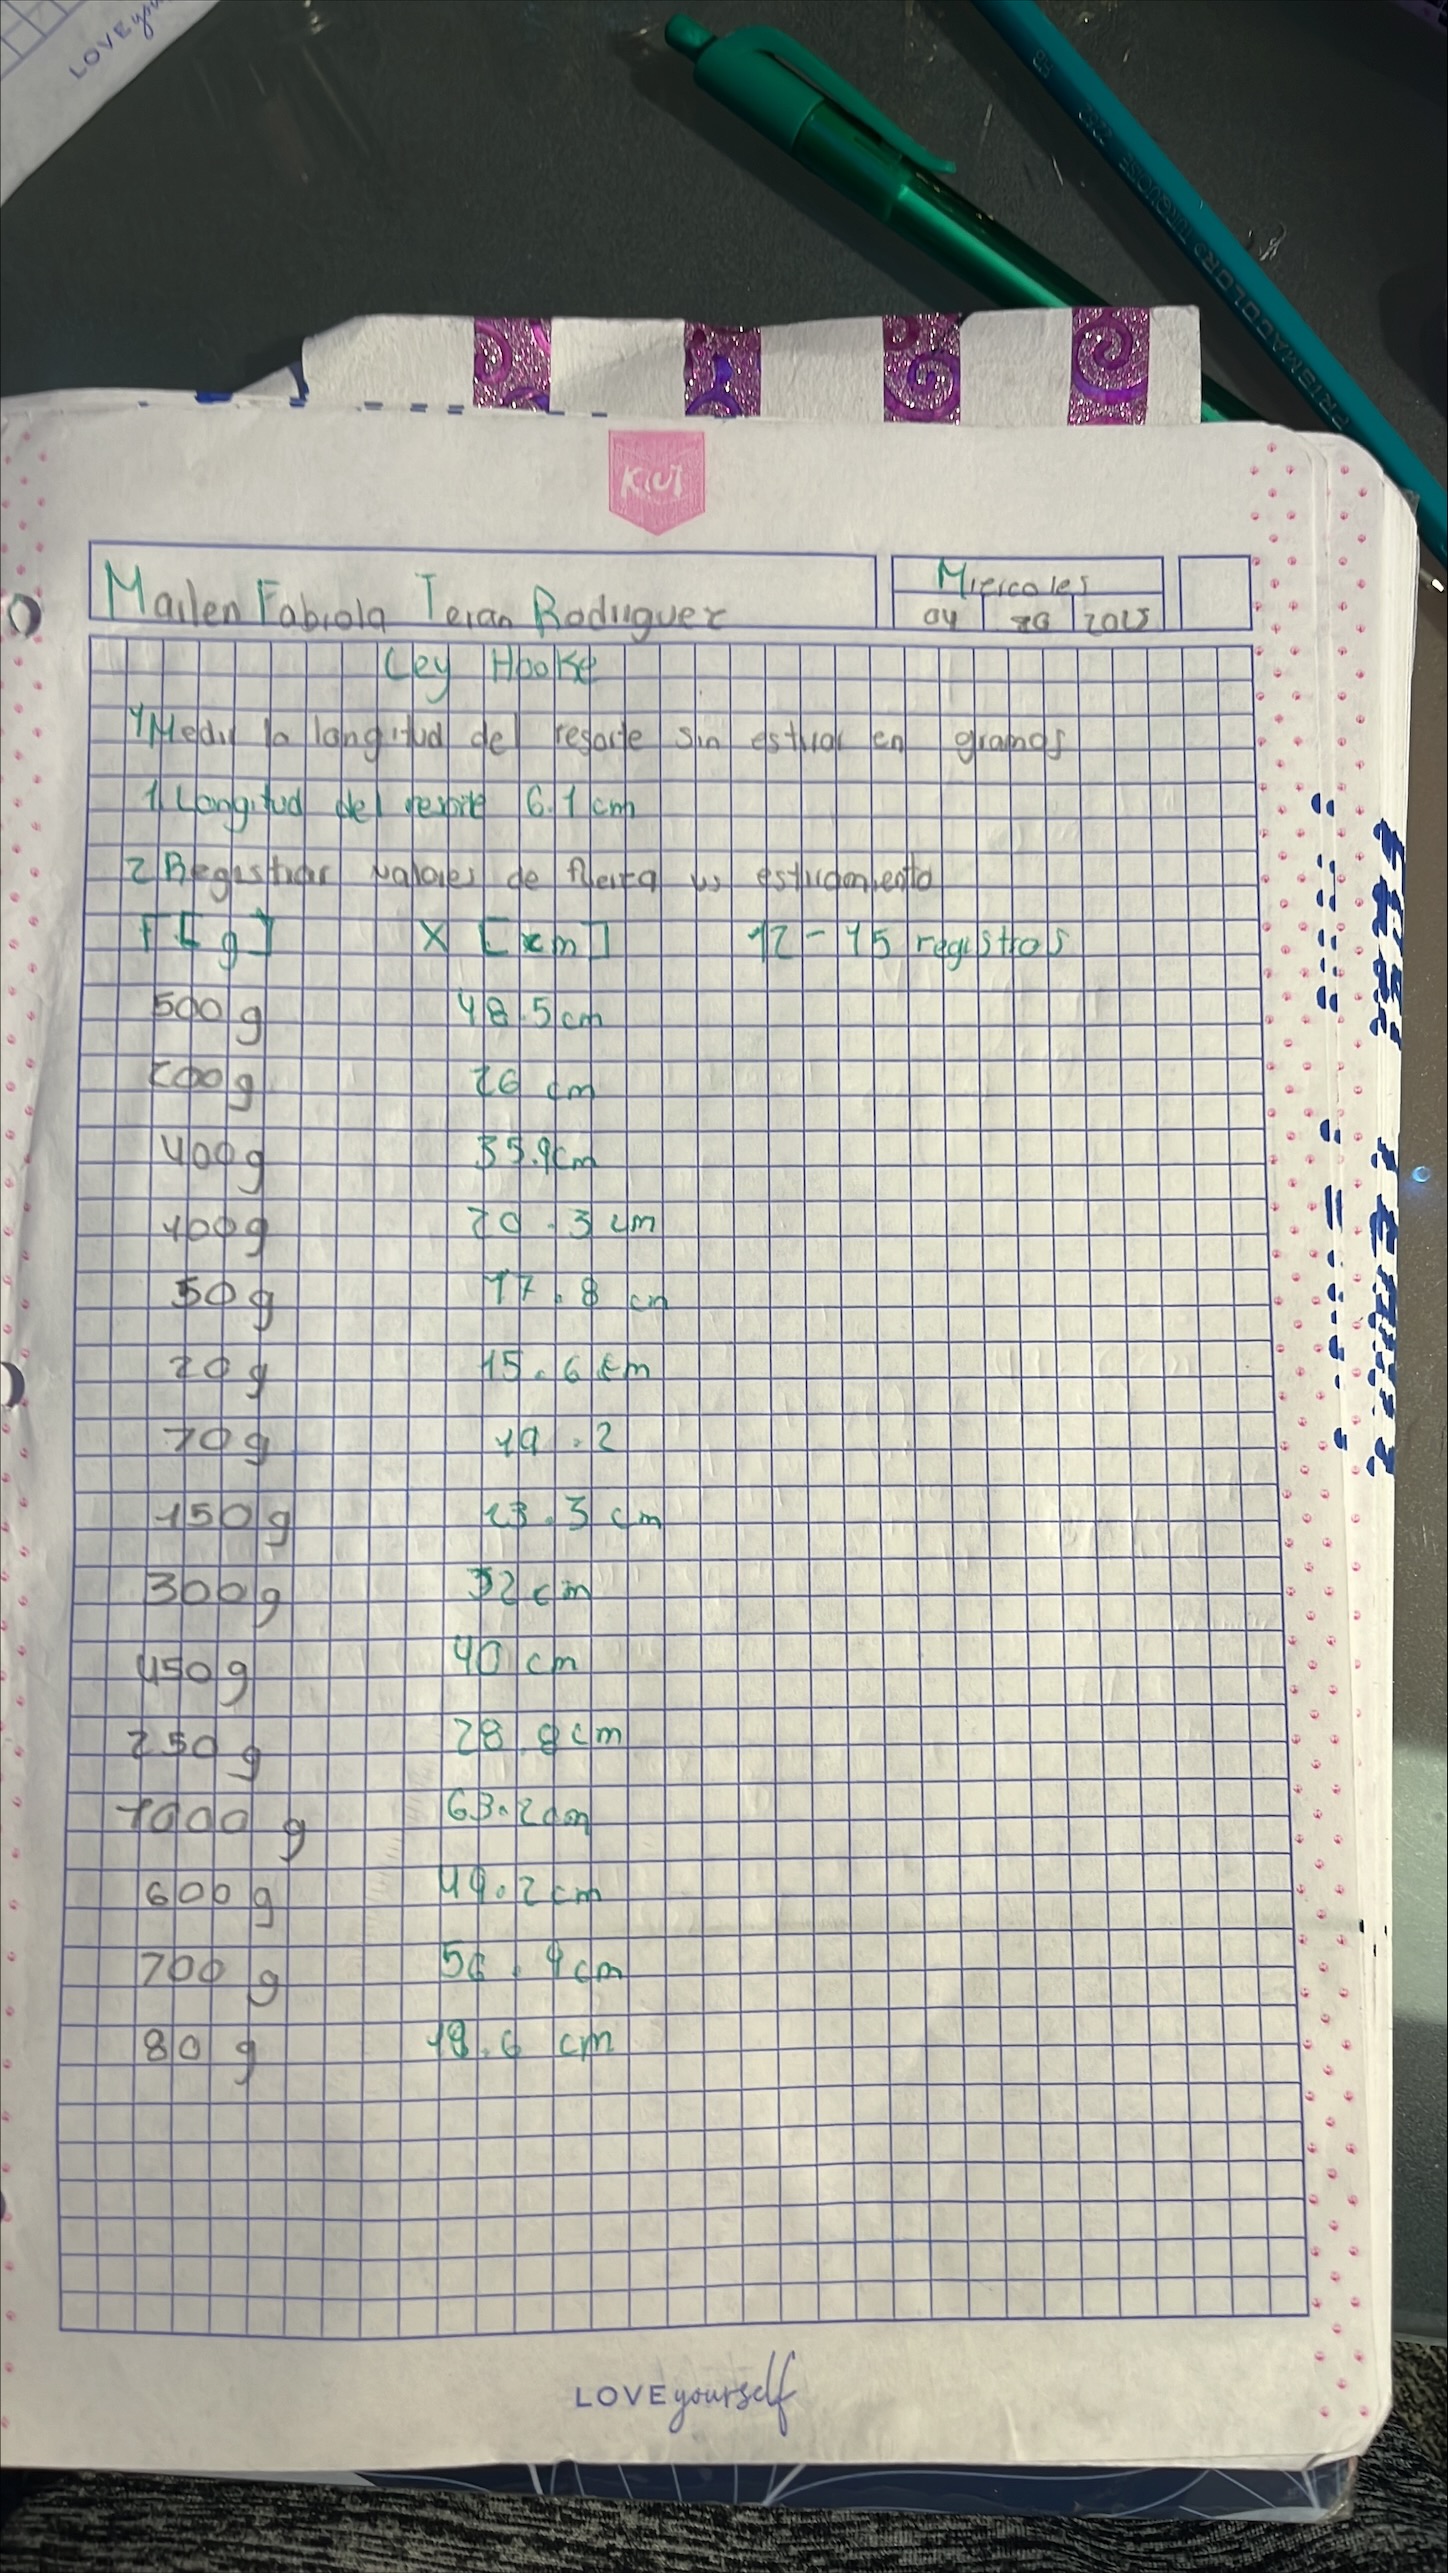 LOVE
2292 PRISMACOLOR TURQUOISE
KIUT
Mailen Fabiola Teran Rodriguez
Miercoles
04 2025
Ley Hooke
1 Medir la longitud del resorte sin estirar en gramos
1 Longitud del resorte 6.1 cm
2 Registrar valores de fuerza vs estiramiento
F [g] X [cm] 12 - 15 registros
500 g 48.5 cm
200 g 26 cm
400 g 35.9 cm
100 g 20.3 cm
50 g 17.8 cm
20 g 15.6 cm
70 g 19.2
150 g 23.3 cm
300 g 32 cm
450 g 40 cm
250 g 28.8 cm
1000 g 63.2 cm
600 g 49.2 cm
700 g 56.9 cm
80 g 18.6 cm
LOVE yourself